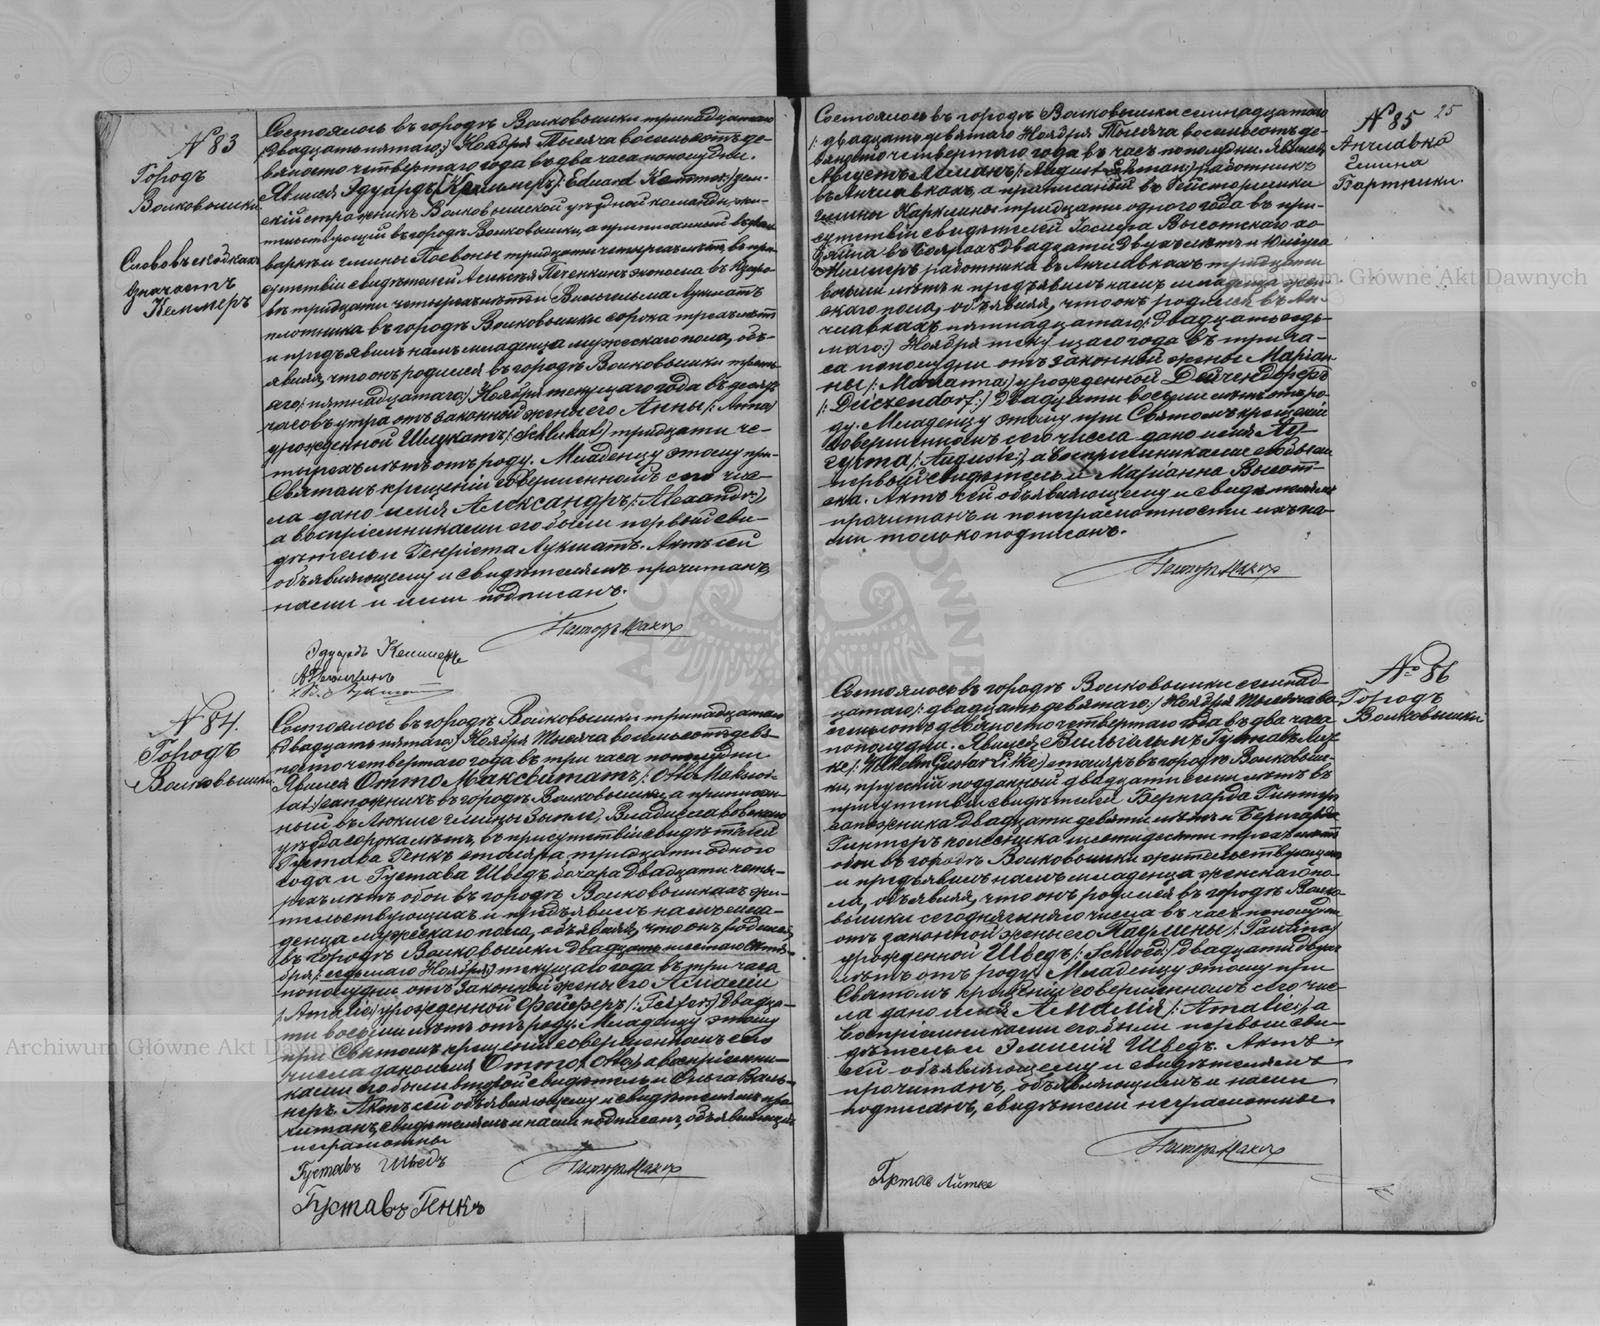 № 83
Городъ
Волковышки.
Слово въ скобкахъ
означаетъ
Кеммеръ
Состоялось въ городѣ Волковышки тринадцатаго
/:двадцать пятаго:/ Ноября тысяча восемьсотъ де-
вяносто четвертаго года въ два часа пополудни.
Явился Эдуардъ /:Кеммеръ:/ Eduard зем-
скій стражникъ Волковышской уѣздной команды, жи-
тельствующій въ городѣ Волковышки, а приписанный
гмины тридцати четырехъ лѣтъ, въ при-
сутствіи свидѣтелей Алексѣя Печенкинъ эконома въ
въ тридцати четырехъ лѣтъ и Вильгельма Лукшатъ
плотника въ городѣ Волковышки сорока трехъ лѣтъ
и предъявилъ намъ младенца мужескаго пола, объ-
являя, что онъ родился въ городѣ Волковышки треть-
яго /:пятнадцатаго:/ Ноября текущаго года въ десять
часовъ утра отъ законной жены его Анны /:Anna:/
урожденной тридцати че-
тырехъ лѣтъ отъ роду. Младенцу этому при
Святомъ крещеніи совершенномъ сего чис-
ла дано имя Александръ /:Alexander:/,
а воспріемниками его были первый сви-
дѣтель и Генріета Лукшатъ. Актъ сей
объявляющему и свидѣтелямъ прочитанъ,
нами и ими подписанъ.
Пасторъ
Эдуардъ Кеммеръ
№ 84.
Городъ
Волковышки
Состоялось въ городѣ Волковышки тринадцатаго
/:двадцать пятаго:/ Ноября тысяча восемьсотъ девя-
носто четвертаго года въ три часа пополудни
Явился Отто Максвитатъ /:Otto Makswi-
tat:/ сапожникъ въ городѣ Волковышки, а приписан-
ный въ гмины Владиславовскаго
уѣзда сорока лѣтъ, въ присутствіи свидѣтелей
Густава Генкъ столяра тридцати одного
года и Густава Шведъ бочара двадцати четы-
рехъ лѣтъ обои въ городѣ Волковышкахъ жи-
тельствующихъ и предъявилъ намъ мла-
денца мужескаго пола, объявляя, что онъ родился
въ городѣ Волковышки двадцать шестаго Октя-
бря /:седьмаго Ноября:/ текущаго года въ три часа
пополудни отъ законной жены его Амаліи
/:Amalie:/ урожденной Фейферъ двадца-
ти восьми лѣтъ отъ роду. Младенцу этому
при Святомъ крещеніи совершенномъ сего
числа дано имя Отто /:Otto:/ а воспріемни-
ками его были второй свидѣтель и Ольга Валь-
неръ. Актъ сей объявляющему и свидѣтелямъ про-
читанъ, свидѣтелями и нами подписанъ, объявляющій
неграмотный
Густавъ Шведъ
Пасторъ
Густавъ Генкъ
25
№ 85
гмина
Бартники.
Состоялось въ городѣ Волковышки семнадцатаго
/:двадцать девятаго:/ Ноября тысяча восемьсотъ де-
вяносто четвертаго года въ часъ пополудни. Явился
Августъ /:August работникъ
въ а приписанный въ
гмины тридцати одного года въ при-
сутствіи свидѣтелей Іосифа Высотскаго хо-
зяина въ двадцати двухъ лѣтъ и
Миллеръ работника въ тридцати
восьми лѣтъ и предъявилъ намъ младенца жен-
скаго пола, объявляя, что онъ родился въ
пятнадцатаго /:двадцать седь-
маго:/ Ноября текущаго года въ три ча-
са пополудни отъ законной жены Маріан-
ны /:Marianna:/ урожденной Дейчендорфъ
/:Deiczendorf:/ двадцати восьми лѣтъ отъ ро-
ду. Младенцу этому при Святомъ крещеніи
совершенномъ сего числа дано имя Ав-
густа /:Auguste:/, а воспріемниками его были
первый свидѣтель и Маріанна Высот-
ска. Актъ сей объявляющему и свидѣтелямъ
прочитанъ и по неграмотности ихъ на-
ми только подписанъ.
Пасторъ
№ 86
Городъ
Волковышки
Состоялось въ городѣ Волковышки семнад-
цатаго /:двадцать девятаго:/ Ноября тысяча во-
семьсотъ девяносто четвертаго года въ два часа
пополудни. Явился Вильгельмъ Густавъ Лит-
ке /:Wilhelm Gustav Litke:/ столяръ въ городѣ Волковыш-
ки, прусскій подданный двадцати семи лѣтъ въ
присутствіи свидѣтелей Бернгарда Гинтеръ
сапожника двадцати девяти лѣтъ и Бернгарда
Гинтеръ колесника шестидесяти трехъ лѣтъ
обои въ городѣ Волковышки жительствующихъ
и предъявилъ намъ младенца женскаго по-
ла, объявляя, что онъ родился въ городѣ Волко-
вышки сегодняшняго числа въ часъ пополудни
отъ законной жены его Паулины /:Paulina:/
урожденной Шведъ /:Schwed:/ двадцати двухъ
лѣтъ отъ роду. Младенцу этому при
Святомъ крещеніи совершенномъ сего чис-
ла дано имя Амалія /:Amalie:/, а
воспріемниками его были первый сви-
дѣтель и Эмилія Шведъ. Актъ
сей объявляющему и свидѣтелямъ
прочитанъ, объявляющимъ и нами
подписанъ, свидѣтели неграмотные
Пасторъ
Густавъ Литке
Archiwum Główne Akt Dawnych
Archiwum Główne Akt Dawnych